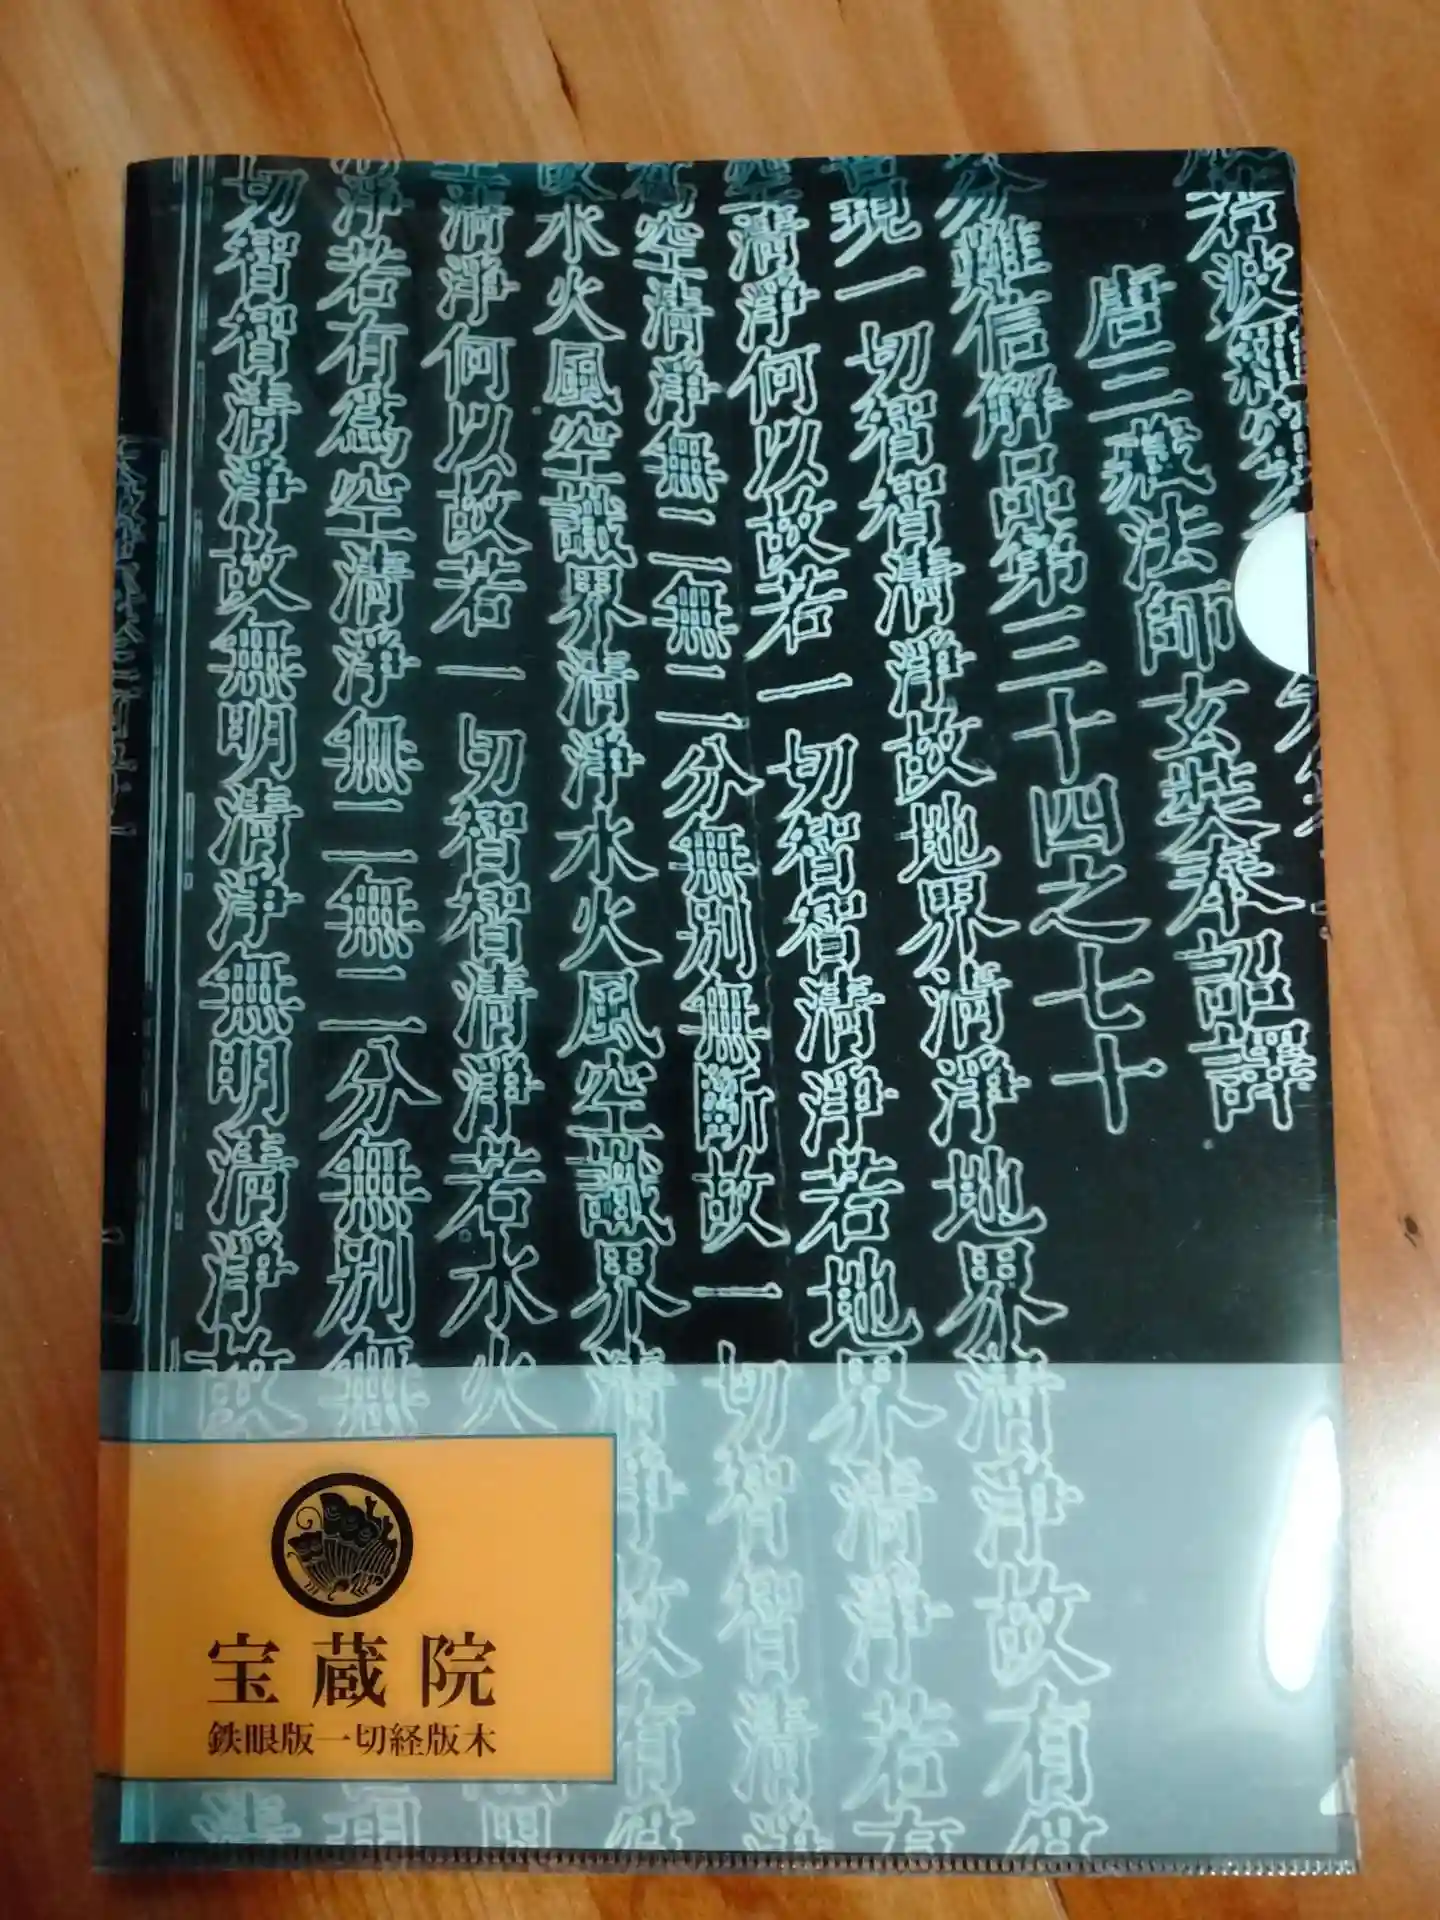 若波羅
唐三蔵法師玄奘奉詔譯
分難信解品第三十四之七十
現一切智智清淨故地界清淨地界清淨故有
空清淨何以故若一切智智清淨若地界清淨若有
為空清淨無二無二分無別無斷故一切智智清
水火風空識界清淨水火風空識界清
清淨何以故若一切智智清淨若水火
淨若有為空清淨無二無二分無別無
切智智清淨故無明清淨無明清淨故
宝蔵院
鉄眼版一切経版木